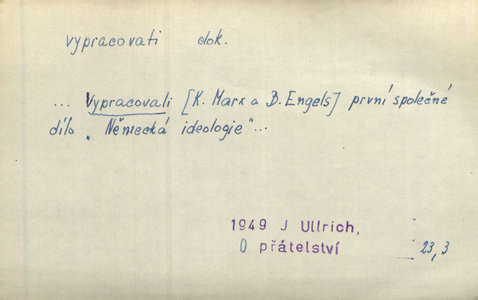 vypracovati dok.
... Vypracovali [K. Marx a B. Engels] první společné
dílo „Německá ideologie"...
1949 J Ullrich,
O přátelství 23,3